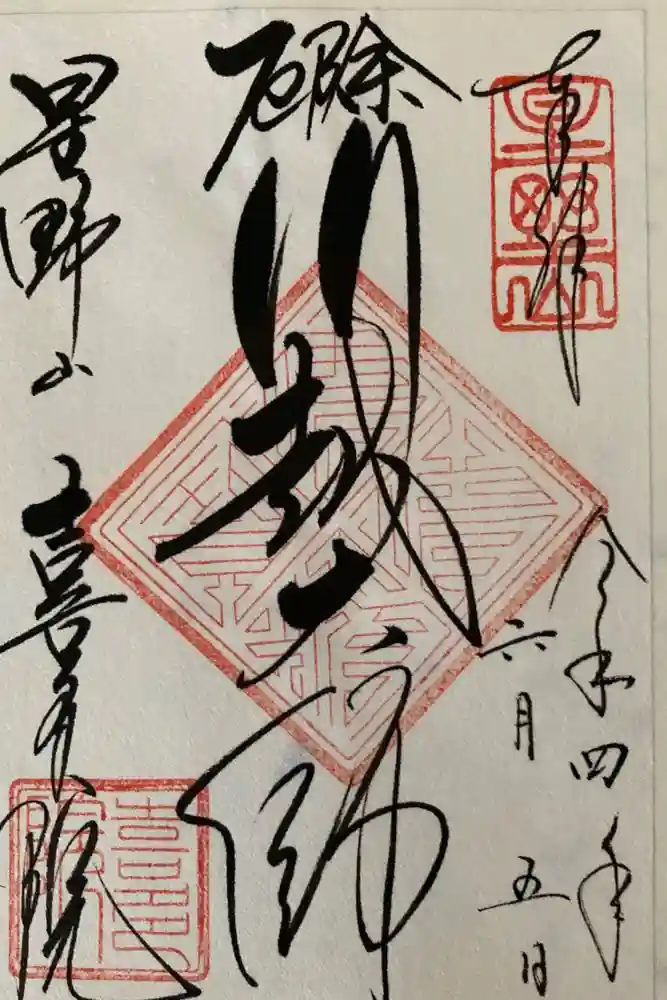 奉拝
星野山
令和四年
六月五日
厄除
川越大師
星野山 喜多院